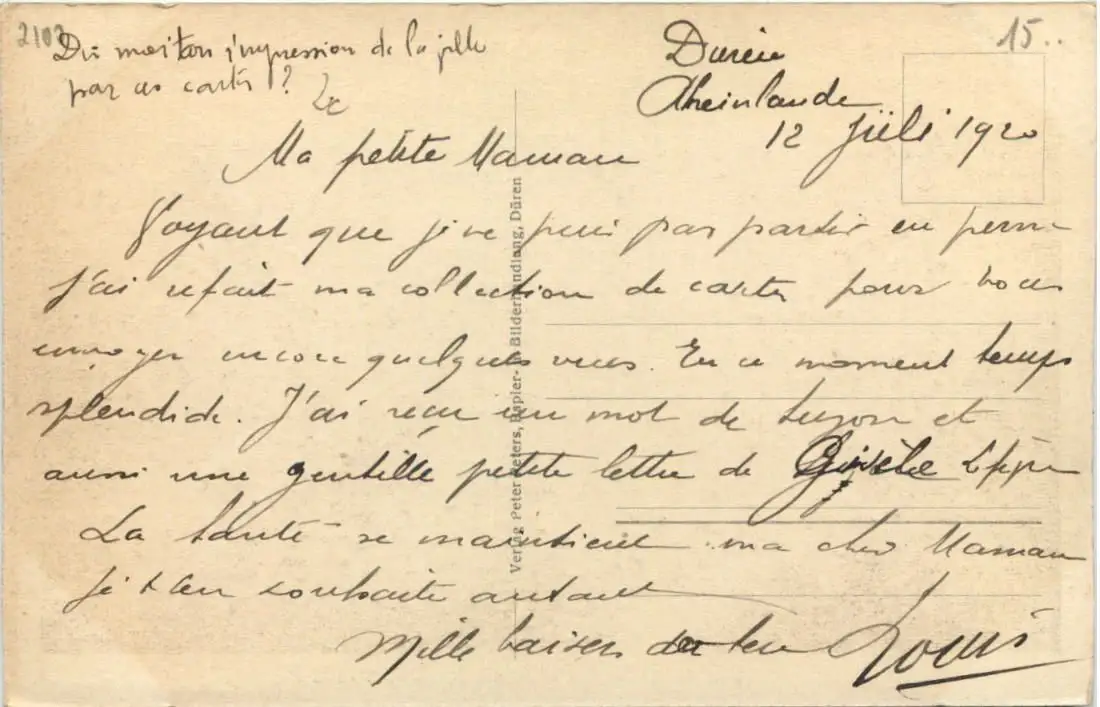 2103
15..
Dis moi ton impression de la
par ces cartes ?
Düren
Rheinlande
12 Jüli 1920
Ma petite Maman
Voyant que je ne puis pas partir en perm
j'ai refait ma collection de cartes pour vous
envoyer encore quelques vues. En ce moment temps
splendide. J'ai reçu un mot de et
aussi une gentille petite lettre de Gisèle
La Santé se maintient ma cher Maman
je t'en souhaite autant
Mille baisers de ton Louis
Verlag Peter Peters, Papier- u. Bilderhandlung, Düren